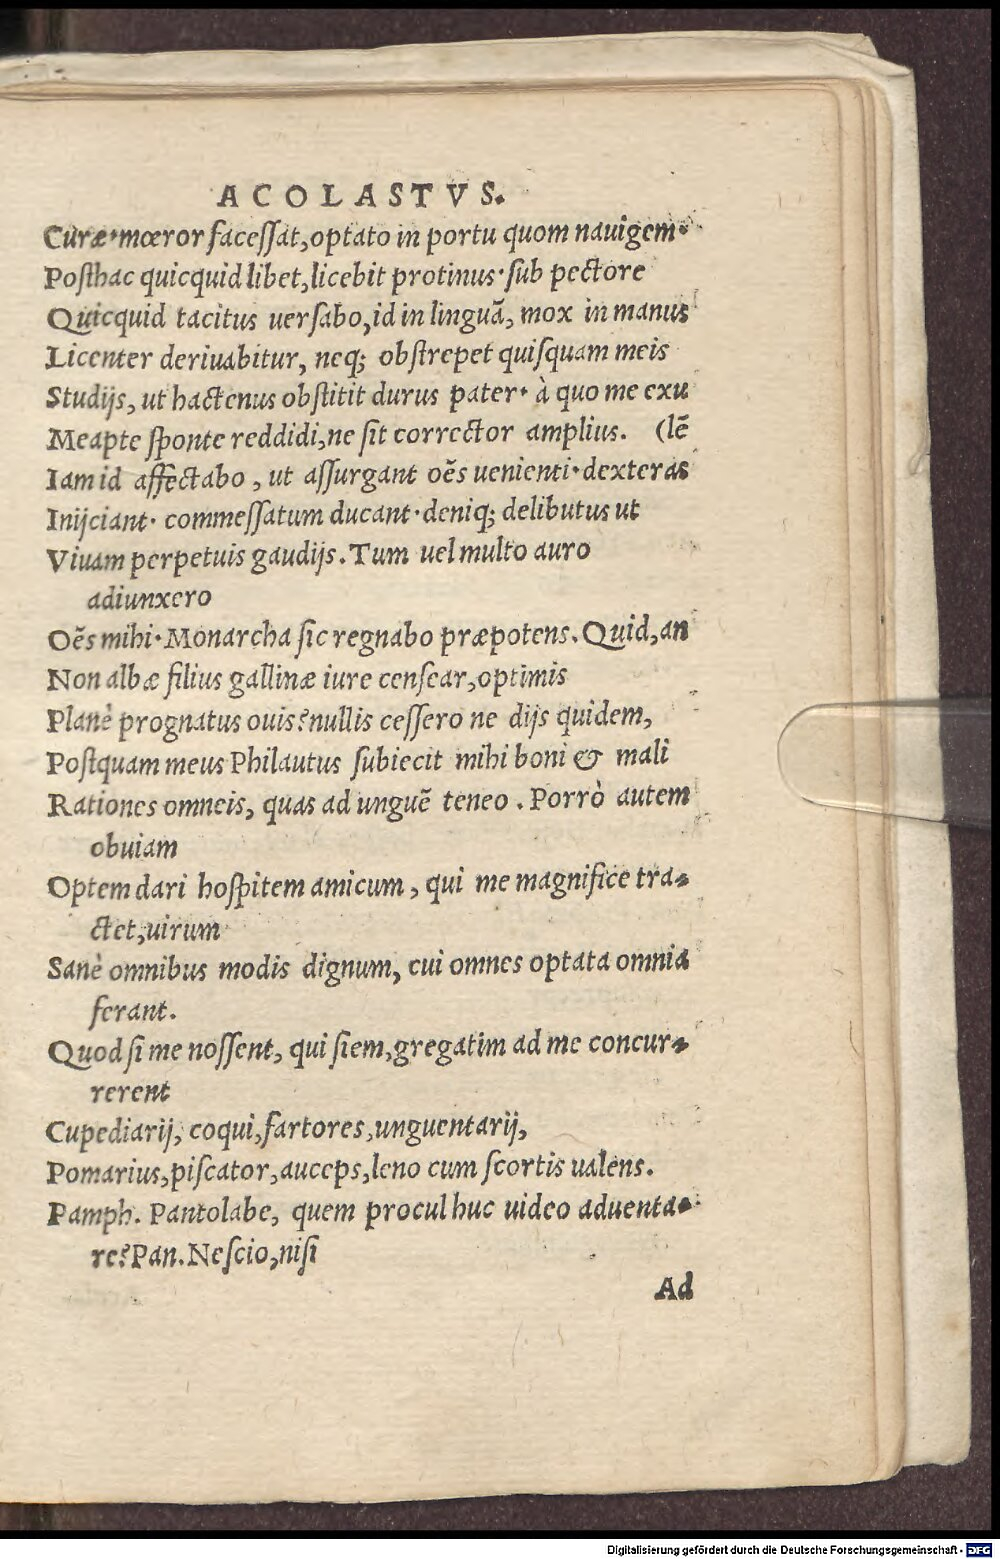 ACOLASTVS.
Curæ·mœror facessat, optato in portu quom nauigem·
Posthac quicquid libet, licebit protinus· sub pectore
Quicquid tacitus uersabo, id in linguã, mox in manus
Licenter deriuabitur, neq; obstrepet quisquam meis
Studijs, ut hactenus obstitit durus pater· à quo me exu
Meapte sponte reddidi, ne sit corrector amplius. (lẽ
Iam id affectabo, ut assurgant oẽs uenienti· dexteras
Inijciant· commessatum ducant· deniq; delibutus ut
Viuam perpetuis gaudijs. Tum uel multo auro
adiunxero
Oẽs mihi· Monarcha sic regnabo præpotens. Quid, an
Non albæ filius gallinæ iure censear, optimis
Planè prognatus ouis? nullis cessero ne dijs quidem,
Postquam meus Philautus subiecit mihi boni & mali
Rationes omneis, quas ad unguẽ teneo. Porrò autem
obuiam
Optem dari hospitem amicum, qui me magnifice tra-
ctet, uirum
Sanè omnibus modis dignum, cui omnes optata omnia
ferant.
Quod si me nossent, qui siem, gregatim ad me concur-
rerent
Cupediarij, coqui, fartores, unguentarij,
Pomarius, piscator, auceps, leno cum scortis ualens.
Pamph. Pantolabe, quem procul huc uideo aduenta-
re? Pan. Nescio, nisi
Ad
Digitalisierung gefördert durch die Deutsche Forschungsgemeinschaft - DFG